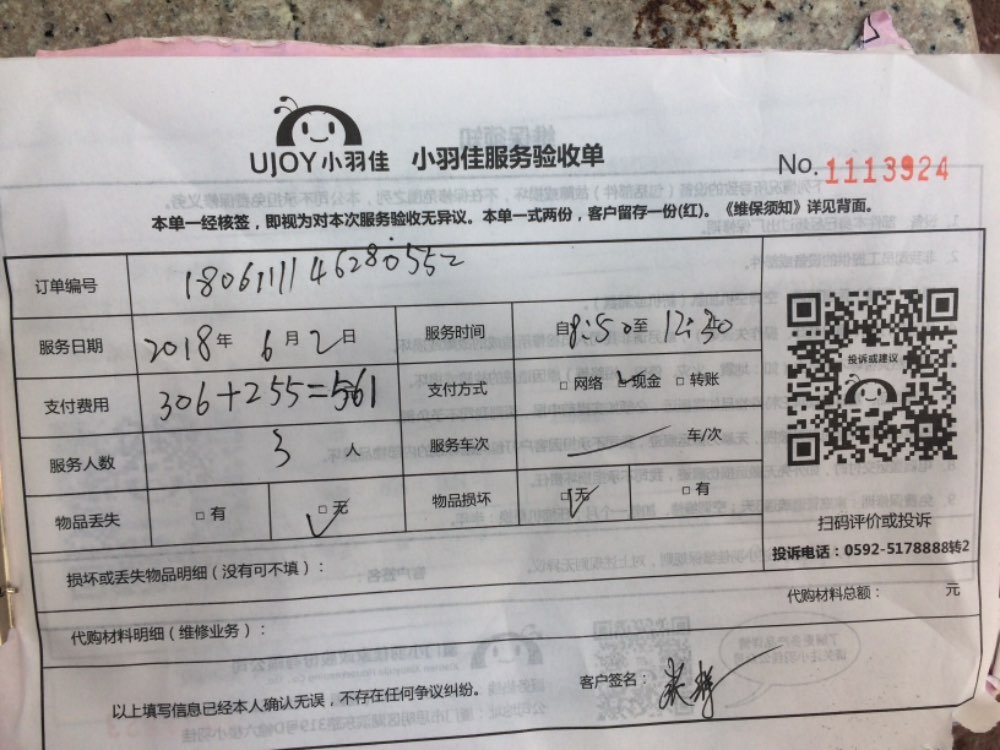 UJOY小羽佳 小羽佳服务验收单
No. 1113924
本单一经核签，即视为对本次服务验收无异议。本单一式两份，客户留存一份(红)。《维保须知》详见背面。
订单编号 1806111146280552
服务日期 2018年 6月 2日 服务时间 自8:50至12:30
支付费用 306+255=561 支付方式 □网络 ☑现金 □转账
服务人数 3 人 服务车次 — 车/次
物品丢失 □有 ☑无 物品损坏 ☑无 □有
投诉或建议
扫码评价或投诉
投诉电话：0592-5178888转2
损坏或丢失物品明细（没有可不填）：
代购材料明细（维修业务）： 代购材料总额： 元
以上填写信息已经本人确认无误，不存在任何争议纠纷。 客户签名：